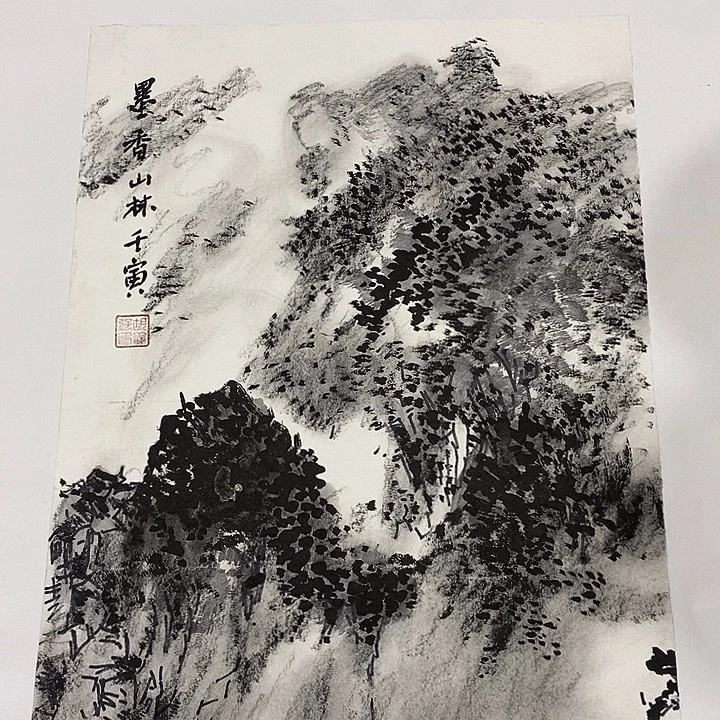 墨香山林壬寅